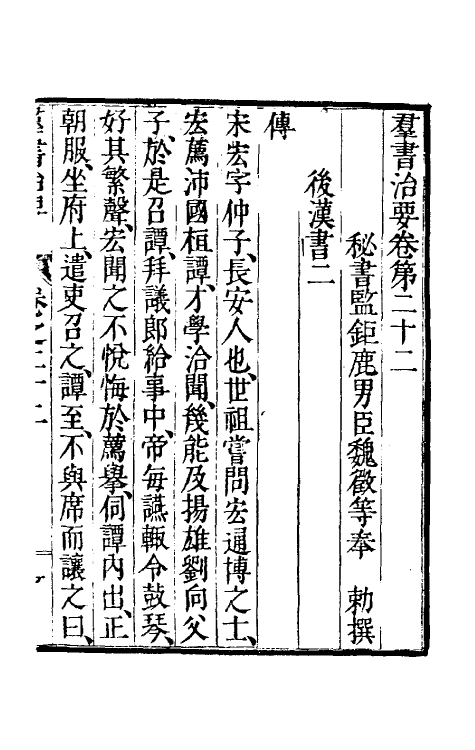 羣書治要卷第二十二
秘書監鉅鹿男臣魏徵等奉　勅撰
後漢書二
傳
宋宏字仲子、長安人也、世祖嘗問宏通博之士、
宏薦沛國桓譚、才學洽聞、幾能及揚雄劉向父
子、於是召譚、拜議郎給事中、帝每讌、輙令鼓琴、
好其繁聲、宏聞之不悅、悔於薦舉、伺譚內出、正
朝服、坐府上、遣吏召之、譚至、不與席而讓之曰、